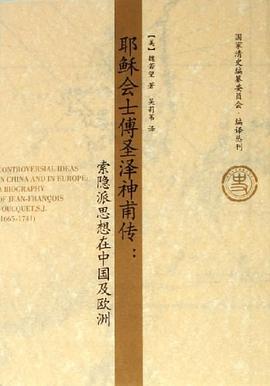 国家清史编纂委员会 编译丛刊
【美】魏若望 著 吴莉苇 译
耶稣会士傅圣泽神甫传：
索隐派思想在中国及欧洲
CONTROVERSIAL IDEAS
IN CHINA AND IN EUROPE:
A BIOGRAPHY
OF JEAN-FRANÇOIS
FOUCQUET, S.J.
(1665-1741)